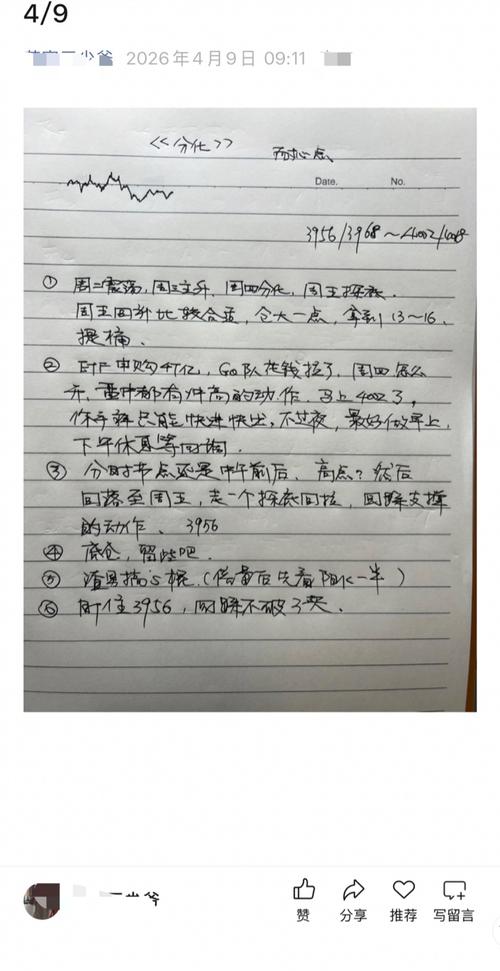 4/9
2026年4月9日 09:11
<<分化>>
Date.
No.
3956/3968～4002/4008
① 周二震荡，周三主升、周四分化，周五探底.
周五回补比较合适，仓大一点，拿到13～16、
提桶.
② ETF申购47亿，GO队花钱拉了，周四怎么
开，盘中都有冲高的动作，马上4002了，
你手痒只能快进快出，不过夜，最好做早上，
下午休息等回调.
③ 分时节点还是中午前后、高点？然后
回落至周五，走一个探底回拉，回踩支撑
的动作、3956
④ 底仓，留些吧.
⑤ 渣男搞心梗.（倍量后先看阳K一半）
⑥ 盯住3956，回踩不破3天.
赞
分享
推荐
写留言